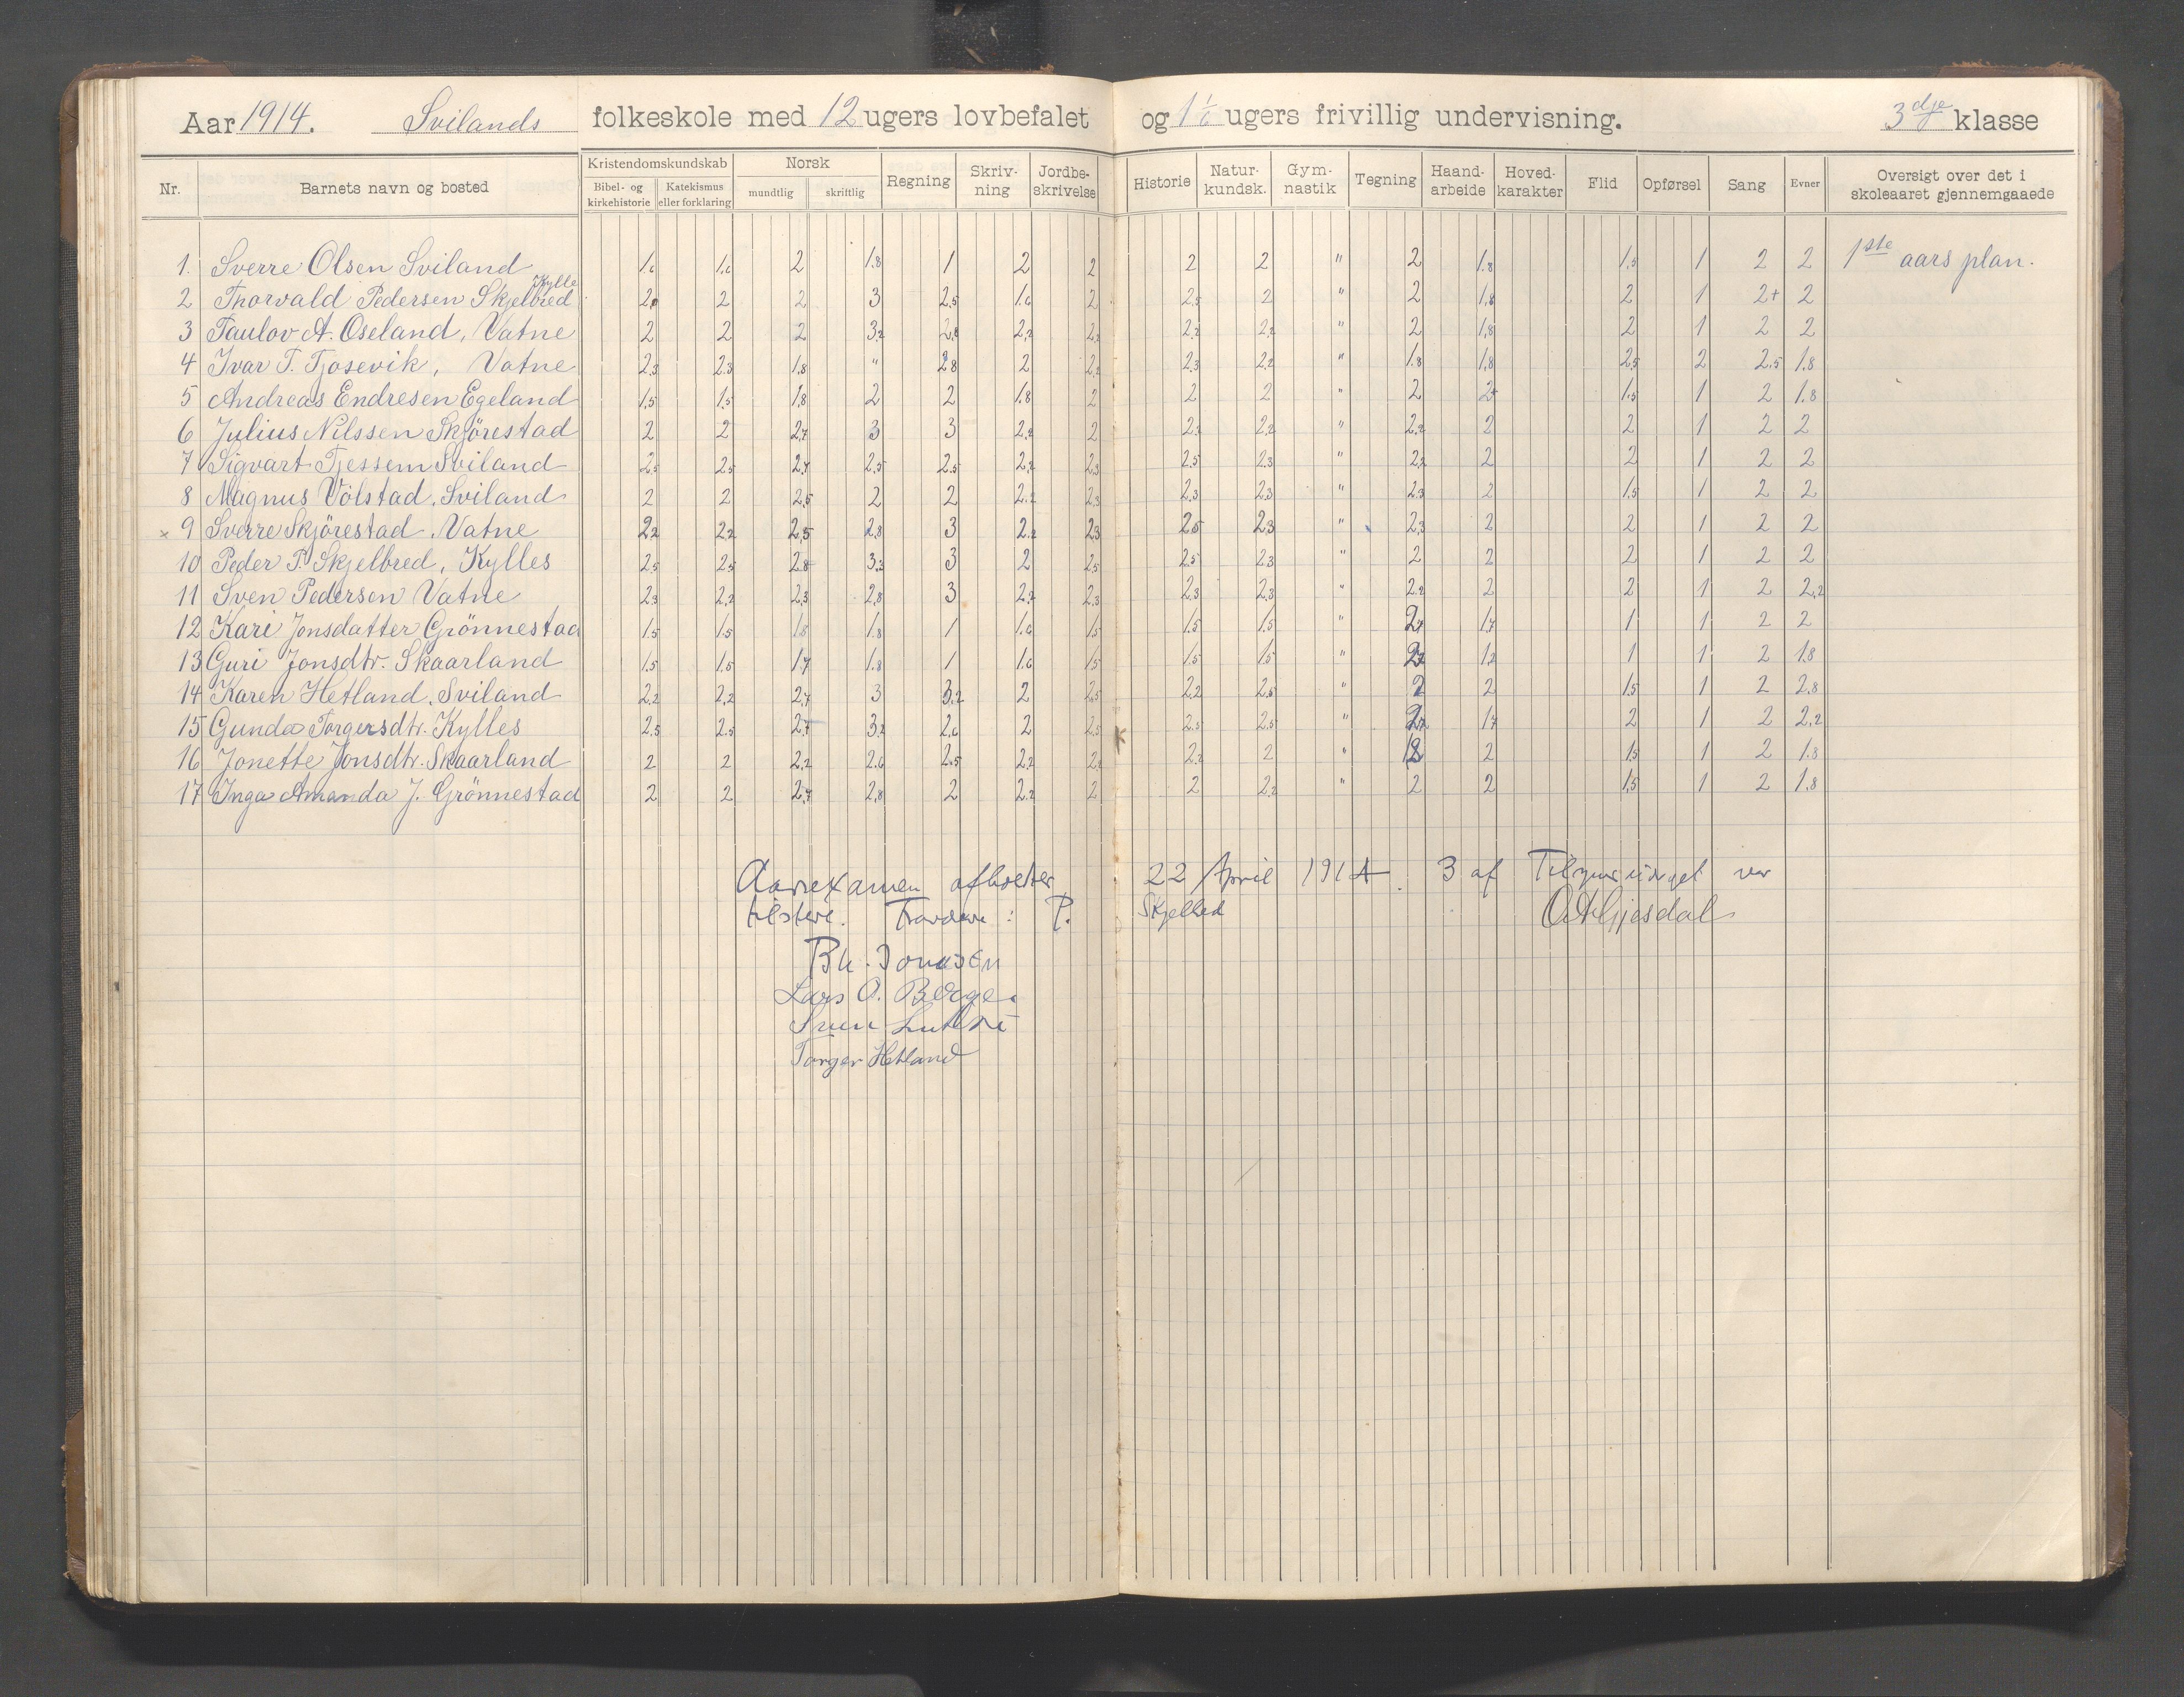 Aar 1914. Svilands folkeskole med 12 ugers lovbefalet og 1 1/6 ugers frivillig undervisning. 3dje klasse
Nr. Barnets navn og bosted Kristendomskundskab Bibel- og kirkehistorie Katekismus eller forklaring Norsk mundtlig skriftlig Regning Skriv-ning Jordbe-skrivelse Historie Natur-kundsk. Gym-nastik Tegning Haand-arbeide Hoved-karakter Flid Opførsel Sang Evner Oversigt over det i skoleaaret gjennemgaaede
1. Sverre Olsen Sviland 1.6 1.6 2 1.8 1 2 2 2 2 " 2 1.8 1.5 1 2 2 1ste aars plan.
Kylle
2 Thorvald Pedersen Skjelbred 2 2 2 3 2.5 1.6 2 2.5 2 " 2 1.8 2 1 2+ 2
3 Taulov A. Oseland, Vatne 2 2 2 3.2 2.8 2.2 2.2 2.2 2.2 " 2 1.8 2 1 2 2
4 Ivar T. Tjosevik, Vatne 2.3 2.3 1.8 " 2.8 2 2.2 2.3 2.2 " 1.8 1.8 2.5 2 2.5 1.8
5 Andreas Endresen Egeland 1.5 1.5 1.8 2 2 1.8 2 2 2 " 2 2+ 1.5 1 2 1.8
6 Julius Nilssen Skjörestad 2 2 2.7 3 3 2.2 2 2.2 2.2 " 2.2 2 2 1 2 2
7 Sigvart Tjessem Sviland 2.5 2.5 2.7 2.5 2.5 2.2 2.3 2.5 2.3 " 2.2 2 2 1 2 2
8 Magnus Völstad, Sviland 2 2 2.5 2 2 2.2 2.3 2.3 2.3 " 2.3 2 1.5 1 2 2
x 9 Sverre Skjörestad, Vatne 2.2 2.2 2.5 2.8 3 2.2 2.3 2.5 2.3 " 2.3 2 2 1 2 2
10 Peder P. Skjelbred, Kylles 2.5 2.5 2.8 3.3 3 2 2.5 2.5 2.3 " 2 2 2 1 2 2
11 Sven Pedersen Vatne 2.3 2.2 2.3 2.8 3 2.2 2.3 2.3 2.3 " 2.2 2 2 1 2 2.2
12 Kari Jonsdatter Grönnestad 1.5 1.5 1.8 1.8 1 1.6 1.5 1.5 1.5 " 2.7 1.7 1 1 2 2
13 Guri Jonsdtr. Skaarland 1.5 1.5 1.7 1.8 1 1.6 1.5 1.5 1.5 " 2.2 1.2 1 1 2 1.8
14 Karen Hetland, Sviland 2.2 2.2 2.7 3 3.2 2 2.5 2.2 2.5 " 2 2 1.5 1 2 2.8
15 Gunda Torgersdtr. Kylles 2.5 2.5 2.7 3.2 2.6 2 2.5 2.5 2.5 " 2.2 1.7 2 1 2 2.2
16 Jonette Jonsdtr. Skaarland 2 2 2.2 2.6 2.5 2.2 2.2 2.2 2 " 1.8 2 1.5 1 2 1.8
17 Inga Amanda J. Grönnestad 2 2 2.7 2.8 2 2.2 2 2 2.2 " 2 2 1.5 1 2 1.8
Aarsexamen afholdes 22 April 1914. 3 af Tilsynsudvalget var
tilstede. P. Skjelbred O A Gjesdal
Jonassen
Lars O. Berge.
Sven
Torger Hetland